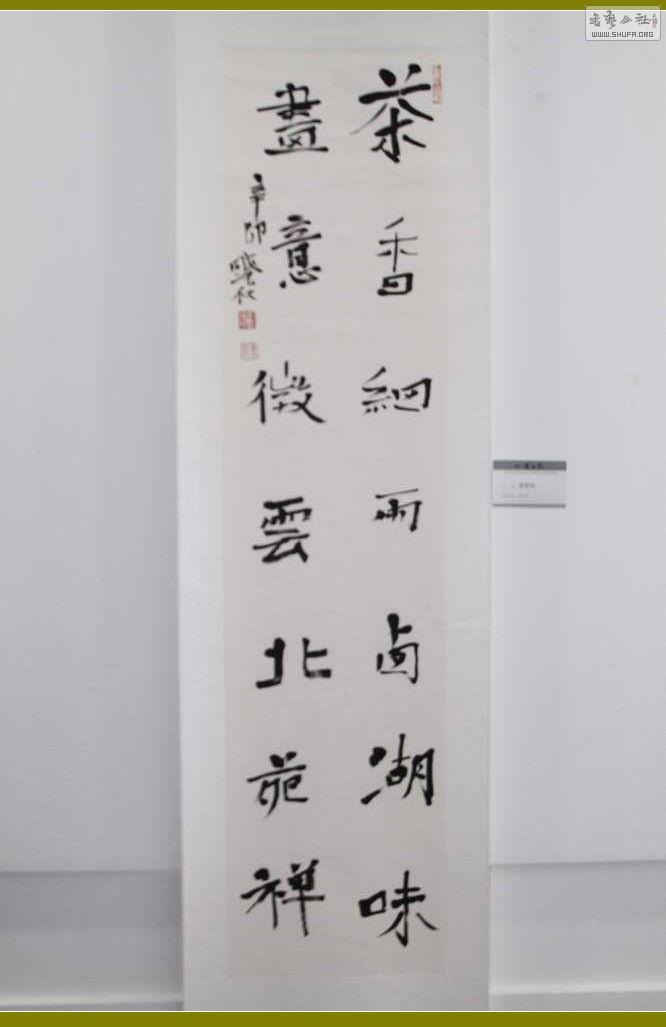 茶香細雨卥湖味
畫意微雲北苑禅
辛卯
書藝公社
WWW.SHUFA.ORG